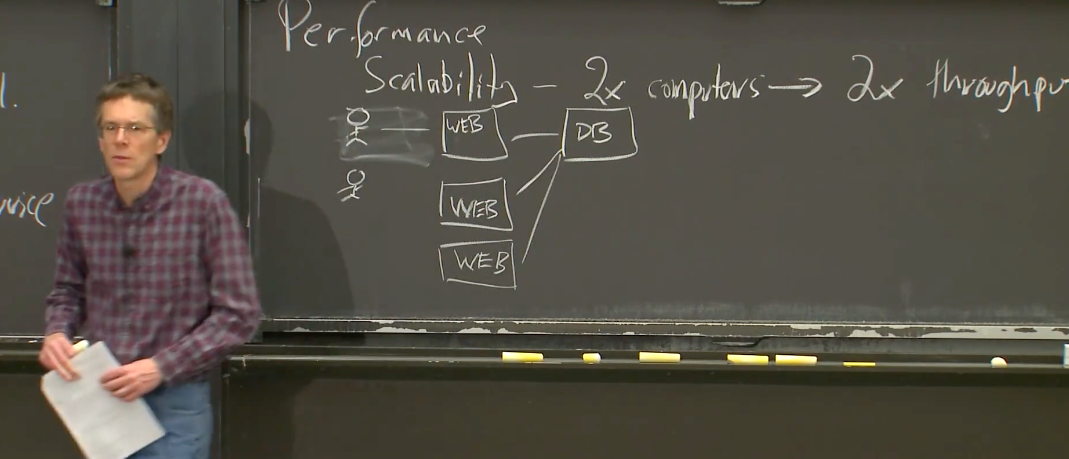 Performance
Scalability – 2x computers → 2x
WEB DB
WEB
WEB